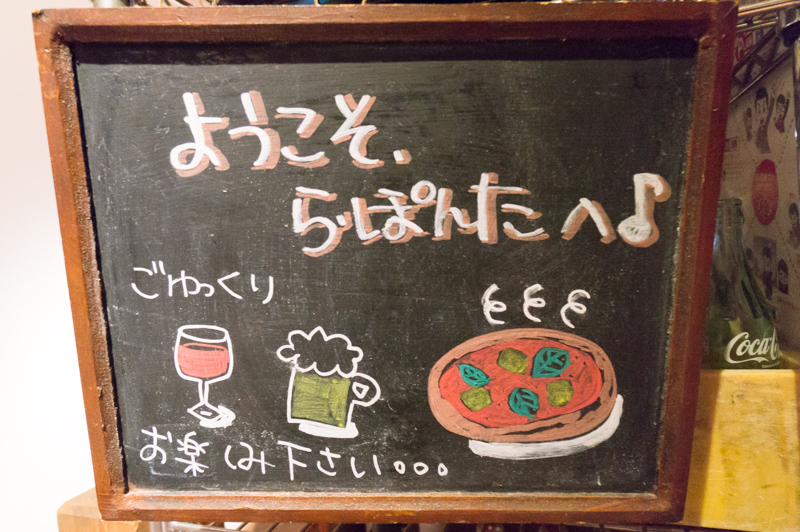 ようこそ、
らぽんたへ♪
ごゆっくり
お楽しみ下さい。。。
Coca-C